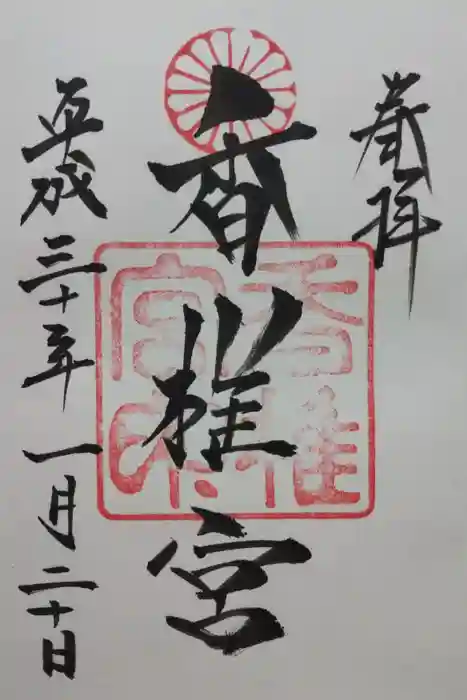 奉拝
香椎宮
平成三十年一月二十日
香椎
宮印